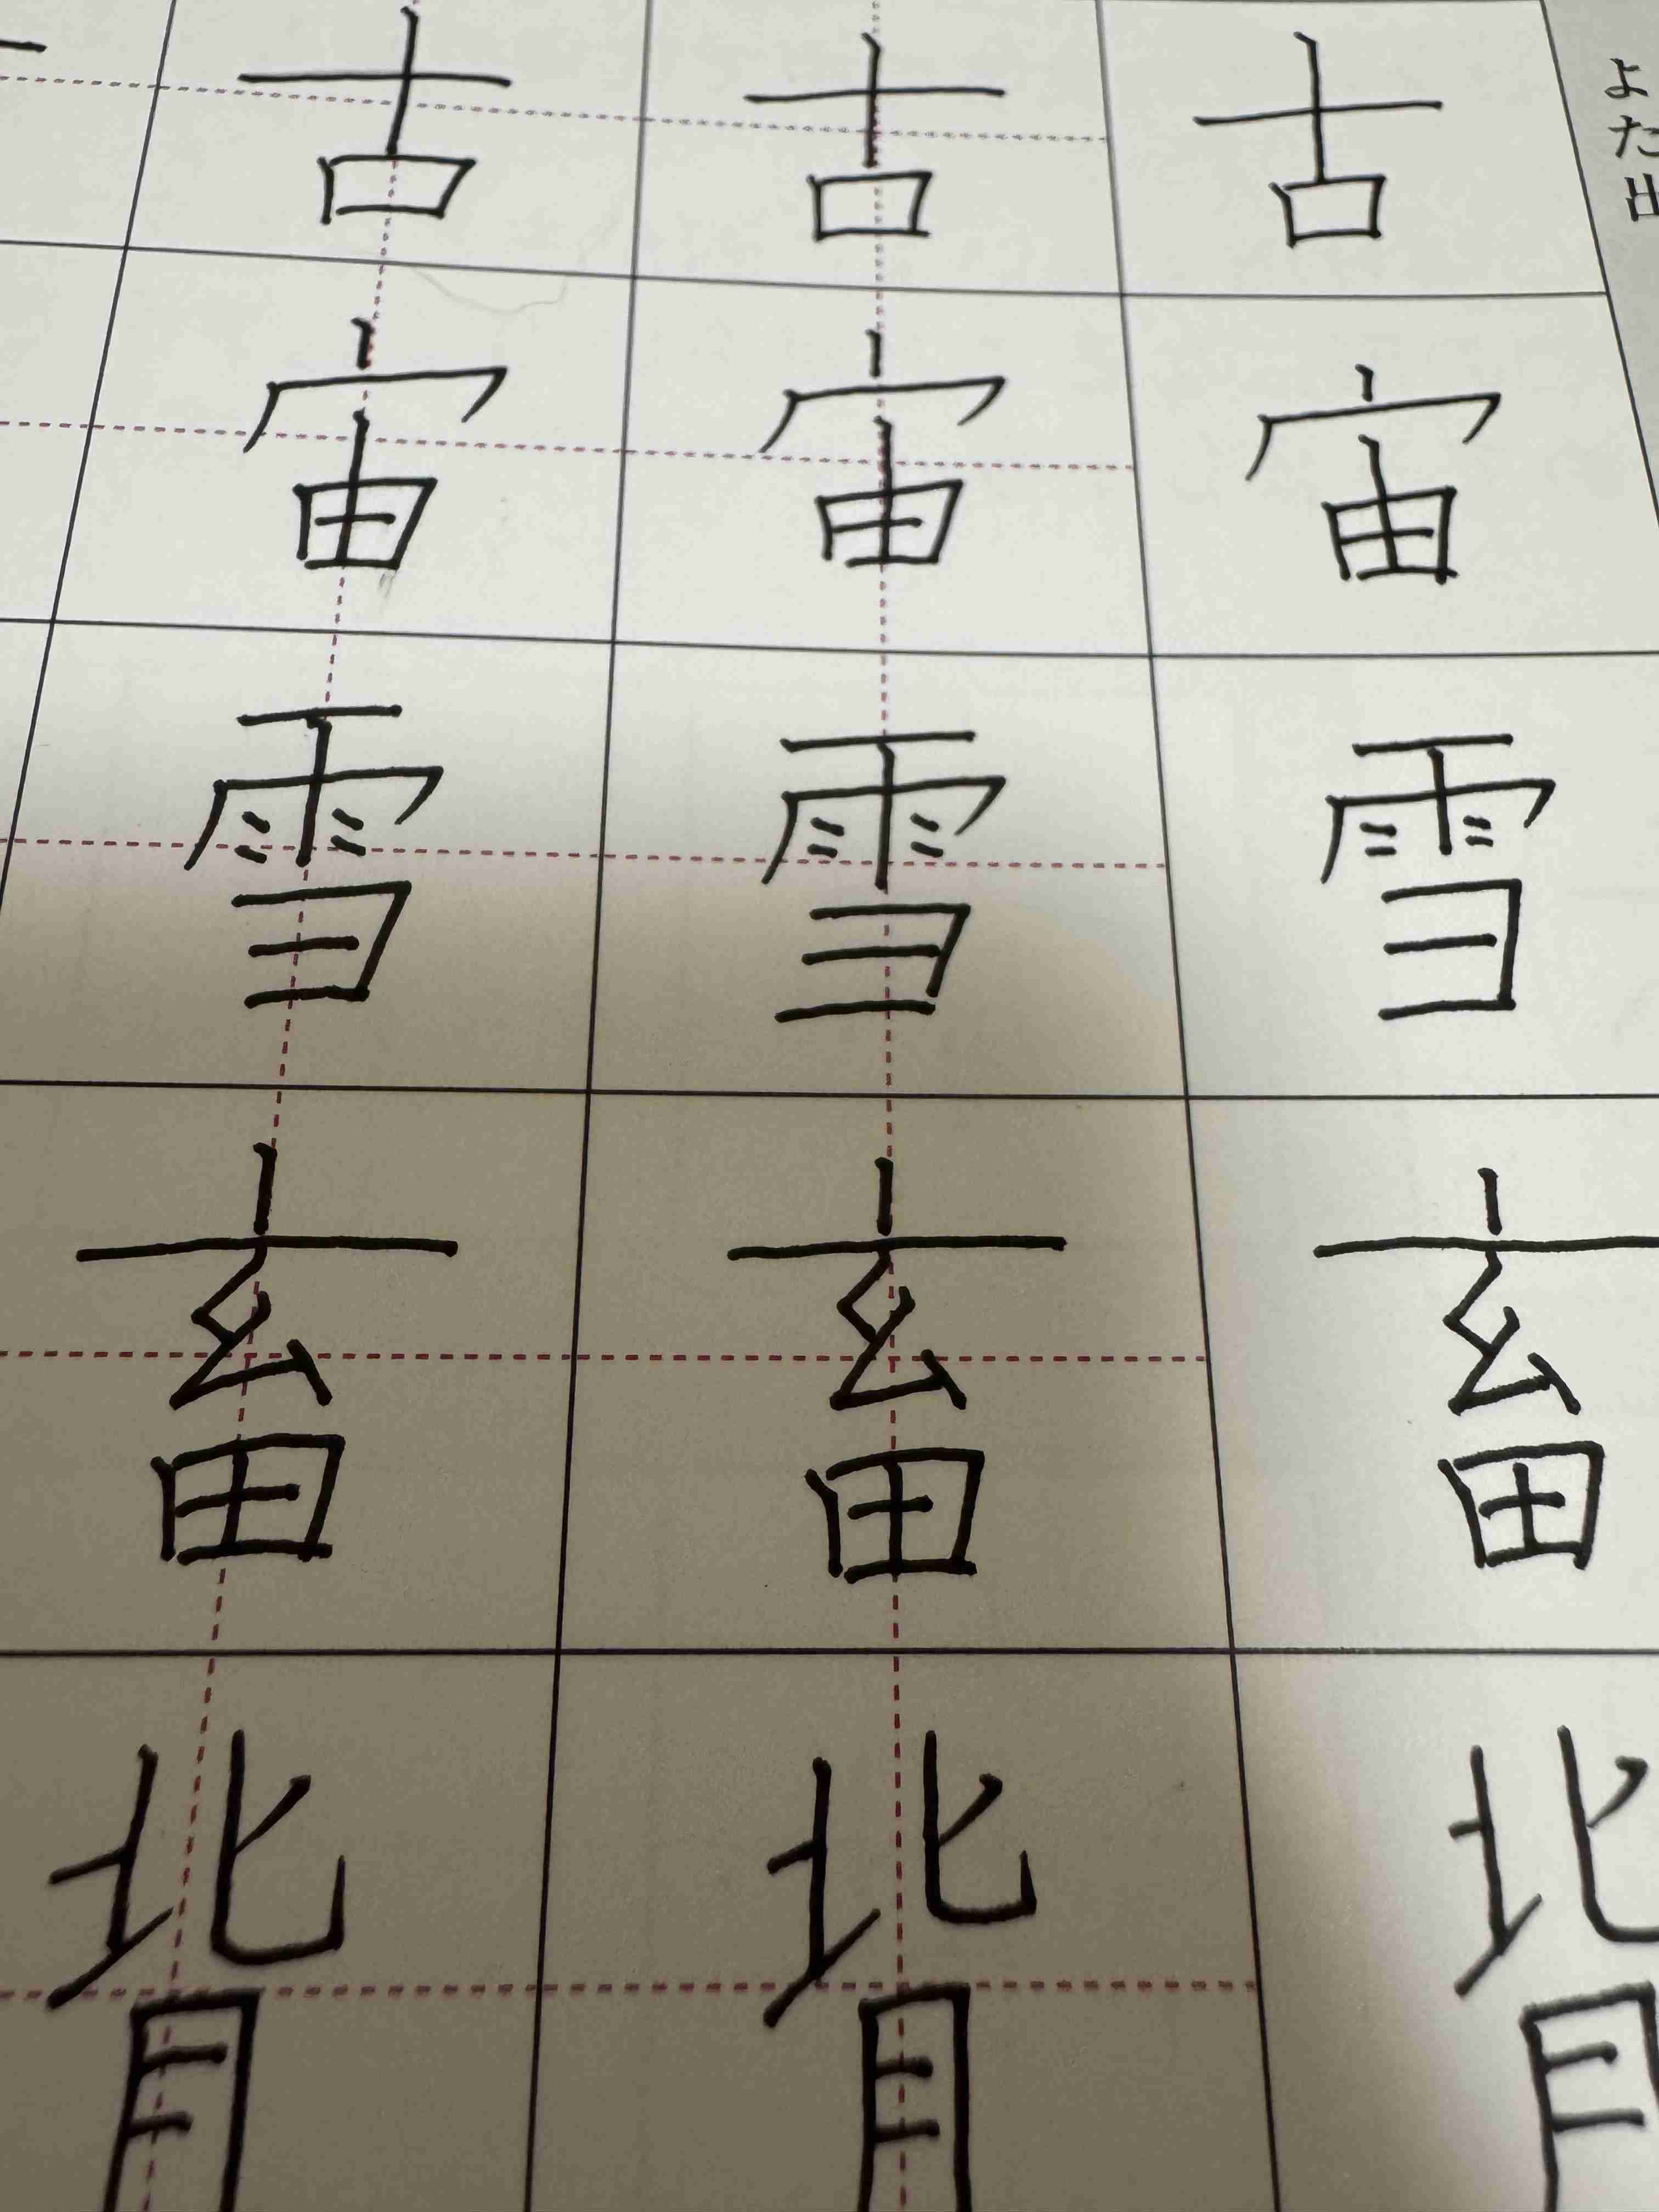 古 古 古
宙 宙 宙
雪 雪 雪
畜 畜 畜
背 背 背